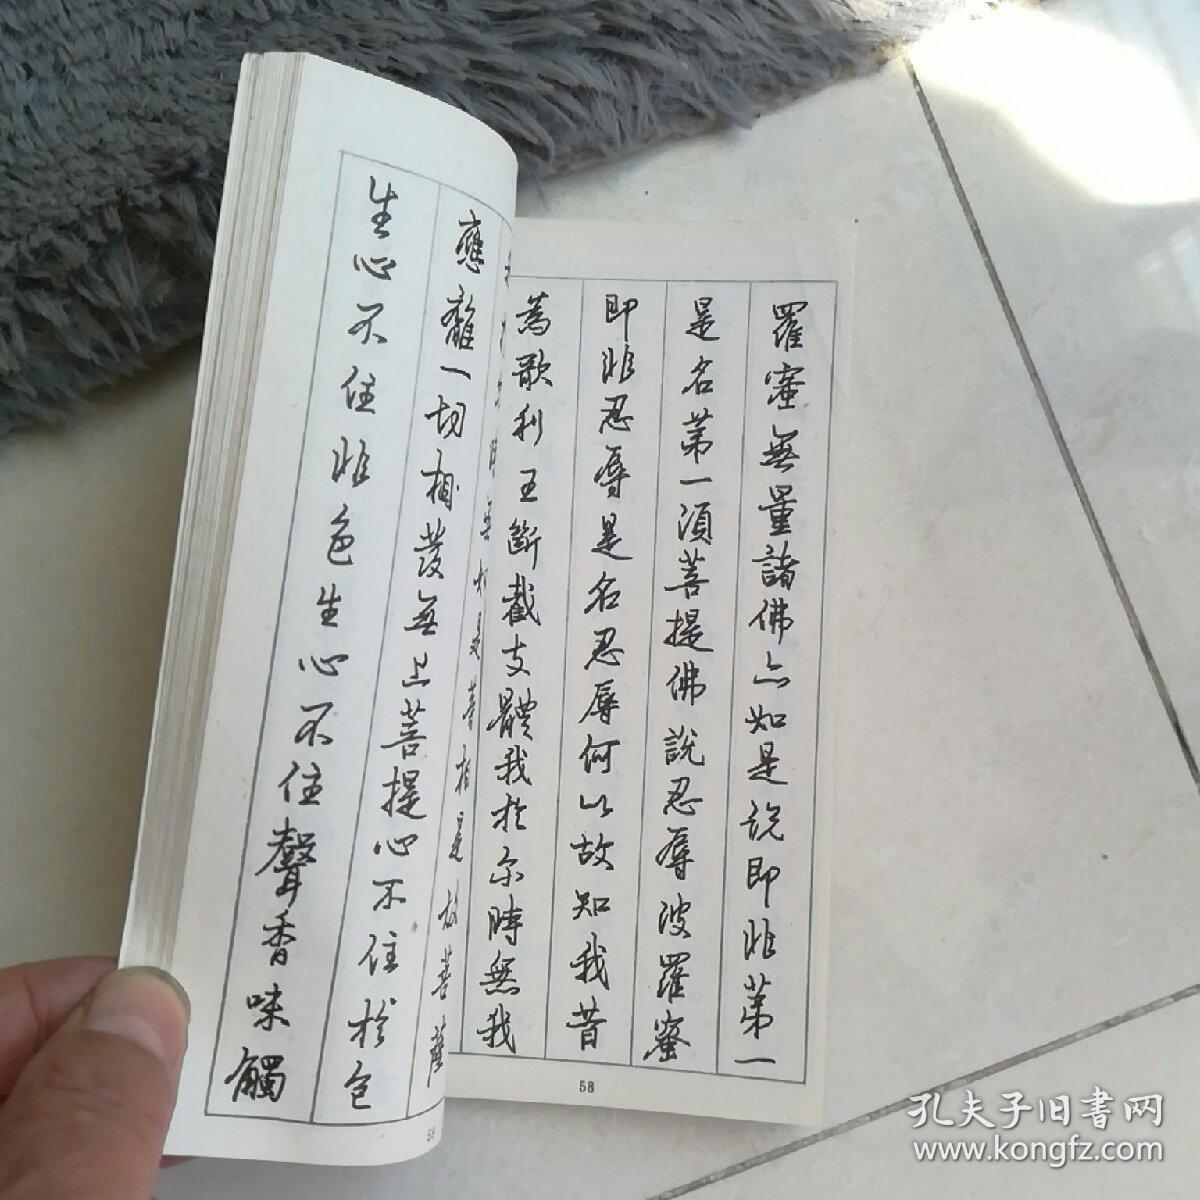 羅蜜無量諸佛亦如是說即非第一
是名第一須菩提佛說忍辱波羅蜜
即非忍辱是名忍辱何以故如我昔
為歌利王斷截支體我於尔時無我
58
相是故菩薩
應離一切相發無上菩提心不住於色
生心不住非色生心不住聲香味觸
孔夫子旧書网
www.kongfz.com